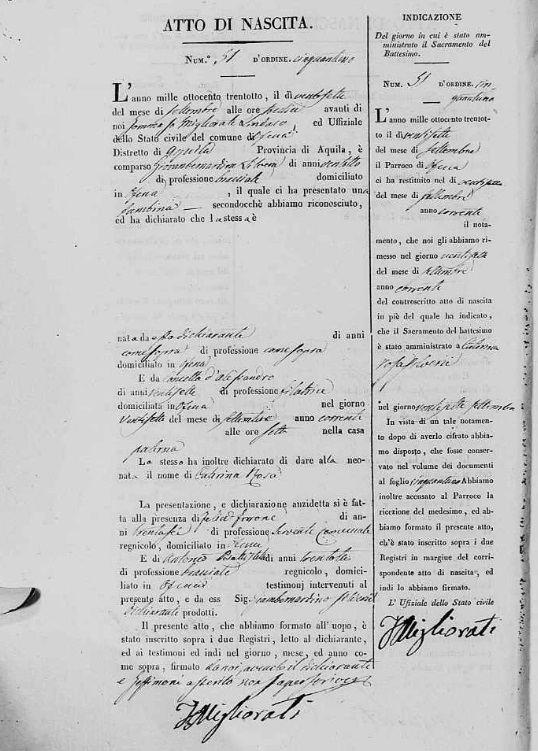 ATTO DI NASCITA.
NUM.º 51 D'ORDINE cinquantuno
L'anno mille ottocento trentotto, il dì ventisette
del mese di settembre alle ore avanti di
noi Migliorati Sindaco ed Uffiziale
dello Stato civile del comune di Ofena
Distretto di Aquila Provincia di Aquila, è
comparso Giovanbernardino Silveri di anni
di professione bracciale domiciliato
in Ofena, il quale ci ha presentato una
bambina secondocchè abbiamo riconosciuto,
ed ha dichiarato che la stessa è
nata da esso dichiarante di anni
come sopra di professione come sopra
domiciliato in Ofena
E da Concetta d'Alesandro
di anni ventisette di professione filatrice
domiciliata in Ofena nel giorno
ventisette del mese di settembre anno corrente
alle ore sette nella casa
paterna
Lo stesso ha inoltre dichiarato di dare alla neo-
nata il nome di Caterina Rosa
La presentazione, e dichiarazione anzidetta si è fat-
ta alla presenza di di an-
ni trentasei di professione servente comunale
regnicolo, domiciliato in Ofena
E di Antonio Battista di anni trentotto
di professione bracciale regnicolo, domici-
liato in Ofena testimonj intervenuti al
presente atto, e da esso Sig. Giambernardino Silveri
dichiarante prodotti.
Il presente atto, che abbiamo formato all'uopo, è
stato inscritto sopra i due Registri, letto al dichiarante,
ed ai testimoni ed indi nel giorno, mese, ed anno co-
me sopra, firmato da noi avendo il dichiarante
e testimoni asserito non saper scrivere
Migliorati
INDICAZIONE
Del giorno in cui è stato am-
ministrato il Sacramento del
Battesimo.
NUM. 51 D'ORDINE cin
quantuno
L'anno mille ottocento trentot-
to il dì ventisette
del mese di settembre
il Parroco di Ofena
ci ha restituito nel dì ventisette
del mese di settembre
anno corrente
il nota-
mento, che noi gli abbiamo ri-
messo nel giorno ventisette
del mese di settembre
anno corrente
del controscritto atto di nascita
in piè del quale ha indicato,
che il Sacramento del battesimo
è stato amministrato a Caterina
Rosa Silveri
nel giorno ventisette settembre
In vista di un tale notamen-
to dopo di averlo cifrato abbia-
mo disposto, che fosse conser-
vato nel volume dei documenti
al foglio cinquantuno Abbiamo
inoltre accusato al Parroco la
ricezione del medesimo, ed ab-
biamo formato il presente atto,
ch'è stato inscritto sopra i due
Registri in margine del corri-
spondente atto di nascita, ed
indi lo abbiamo firmato.
L'Ufiziale dello Stato civile
Migliorati